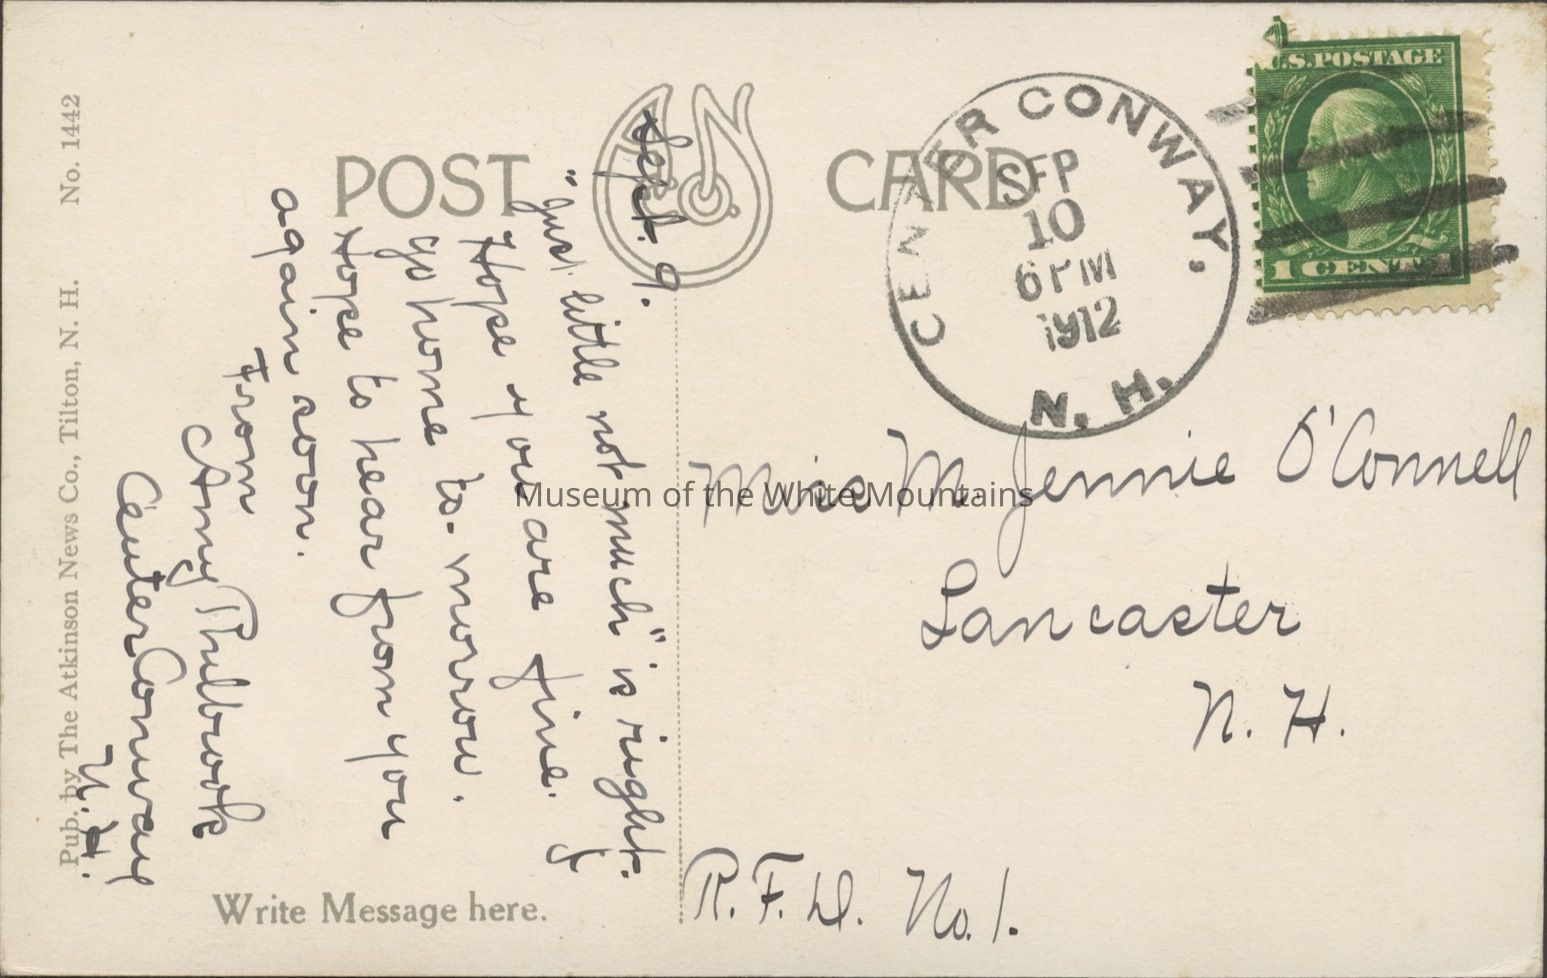 POST CARD
CENTER CONWAY,
N. H.
SEP
10
6 PM
1912
U.S. POSTAGE
1 CENT 1
Sept. 9.
"Just little not much" is right.
Hope you are fine. I
go home to-morrow.
Hope to hear from you
again soon.
From
Amy Philbrook
Center Conway
N. H.
Miss M Jennie O'Connell
Lancaster
N. H.
R. F. D. No. 1.
Write Message here.
Pub. by The Atkinson News Co., Tilton, N. H. No. 1442
Museum of the White Mountains